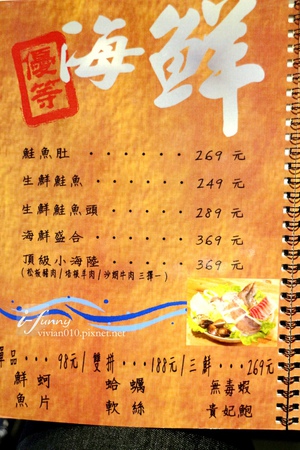 優等
海鮮
鮭魚肚 ‧‧‧‧‧‧ 269 元
生鮮鮭魚 ‧‧‧‧‧ 249 元
生鮮鮭魚頭 ‧‧‧‧ 289 元
海鮮盛合 ‧‧‧‧‧ 369 元
頂級小海陸 ‧‧‧‧ 369 元
(松板豬肉/培根羊肉/沙朗牛肉 三擇一)
ifunny
vivian010.pixnet.net
單品‧‧‧98元/雙拼‧‧‧188元/三鮮‧‧‧269元
鮮蚵 蛤蠣 無毒蝦
魚片 軟絲 貴妃鮑